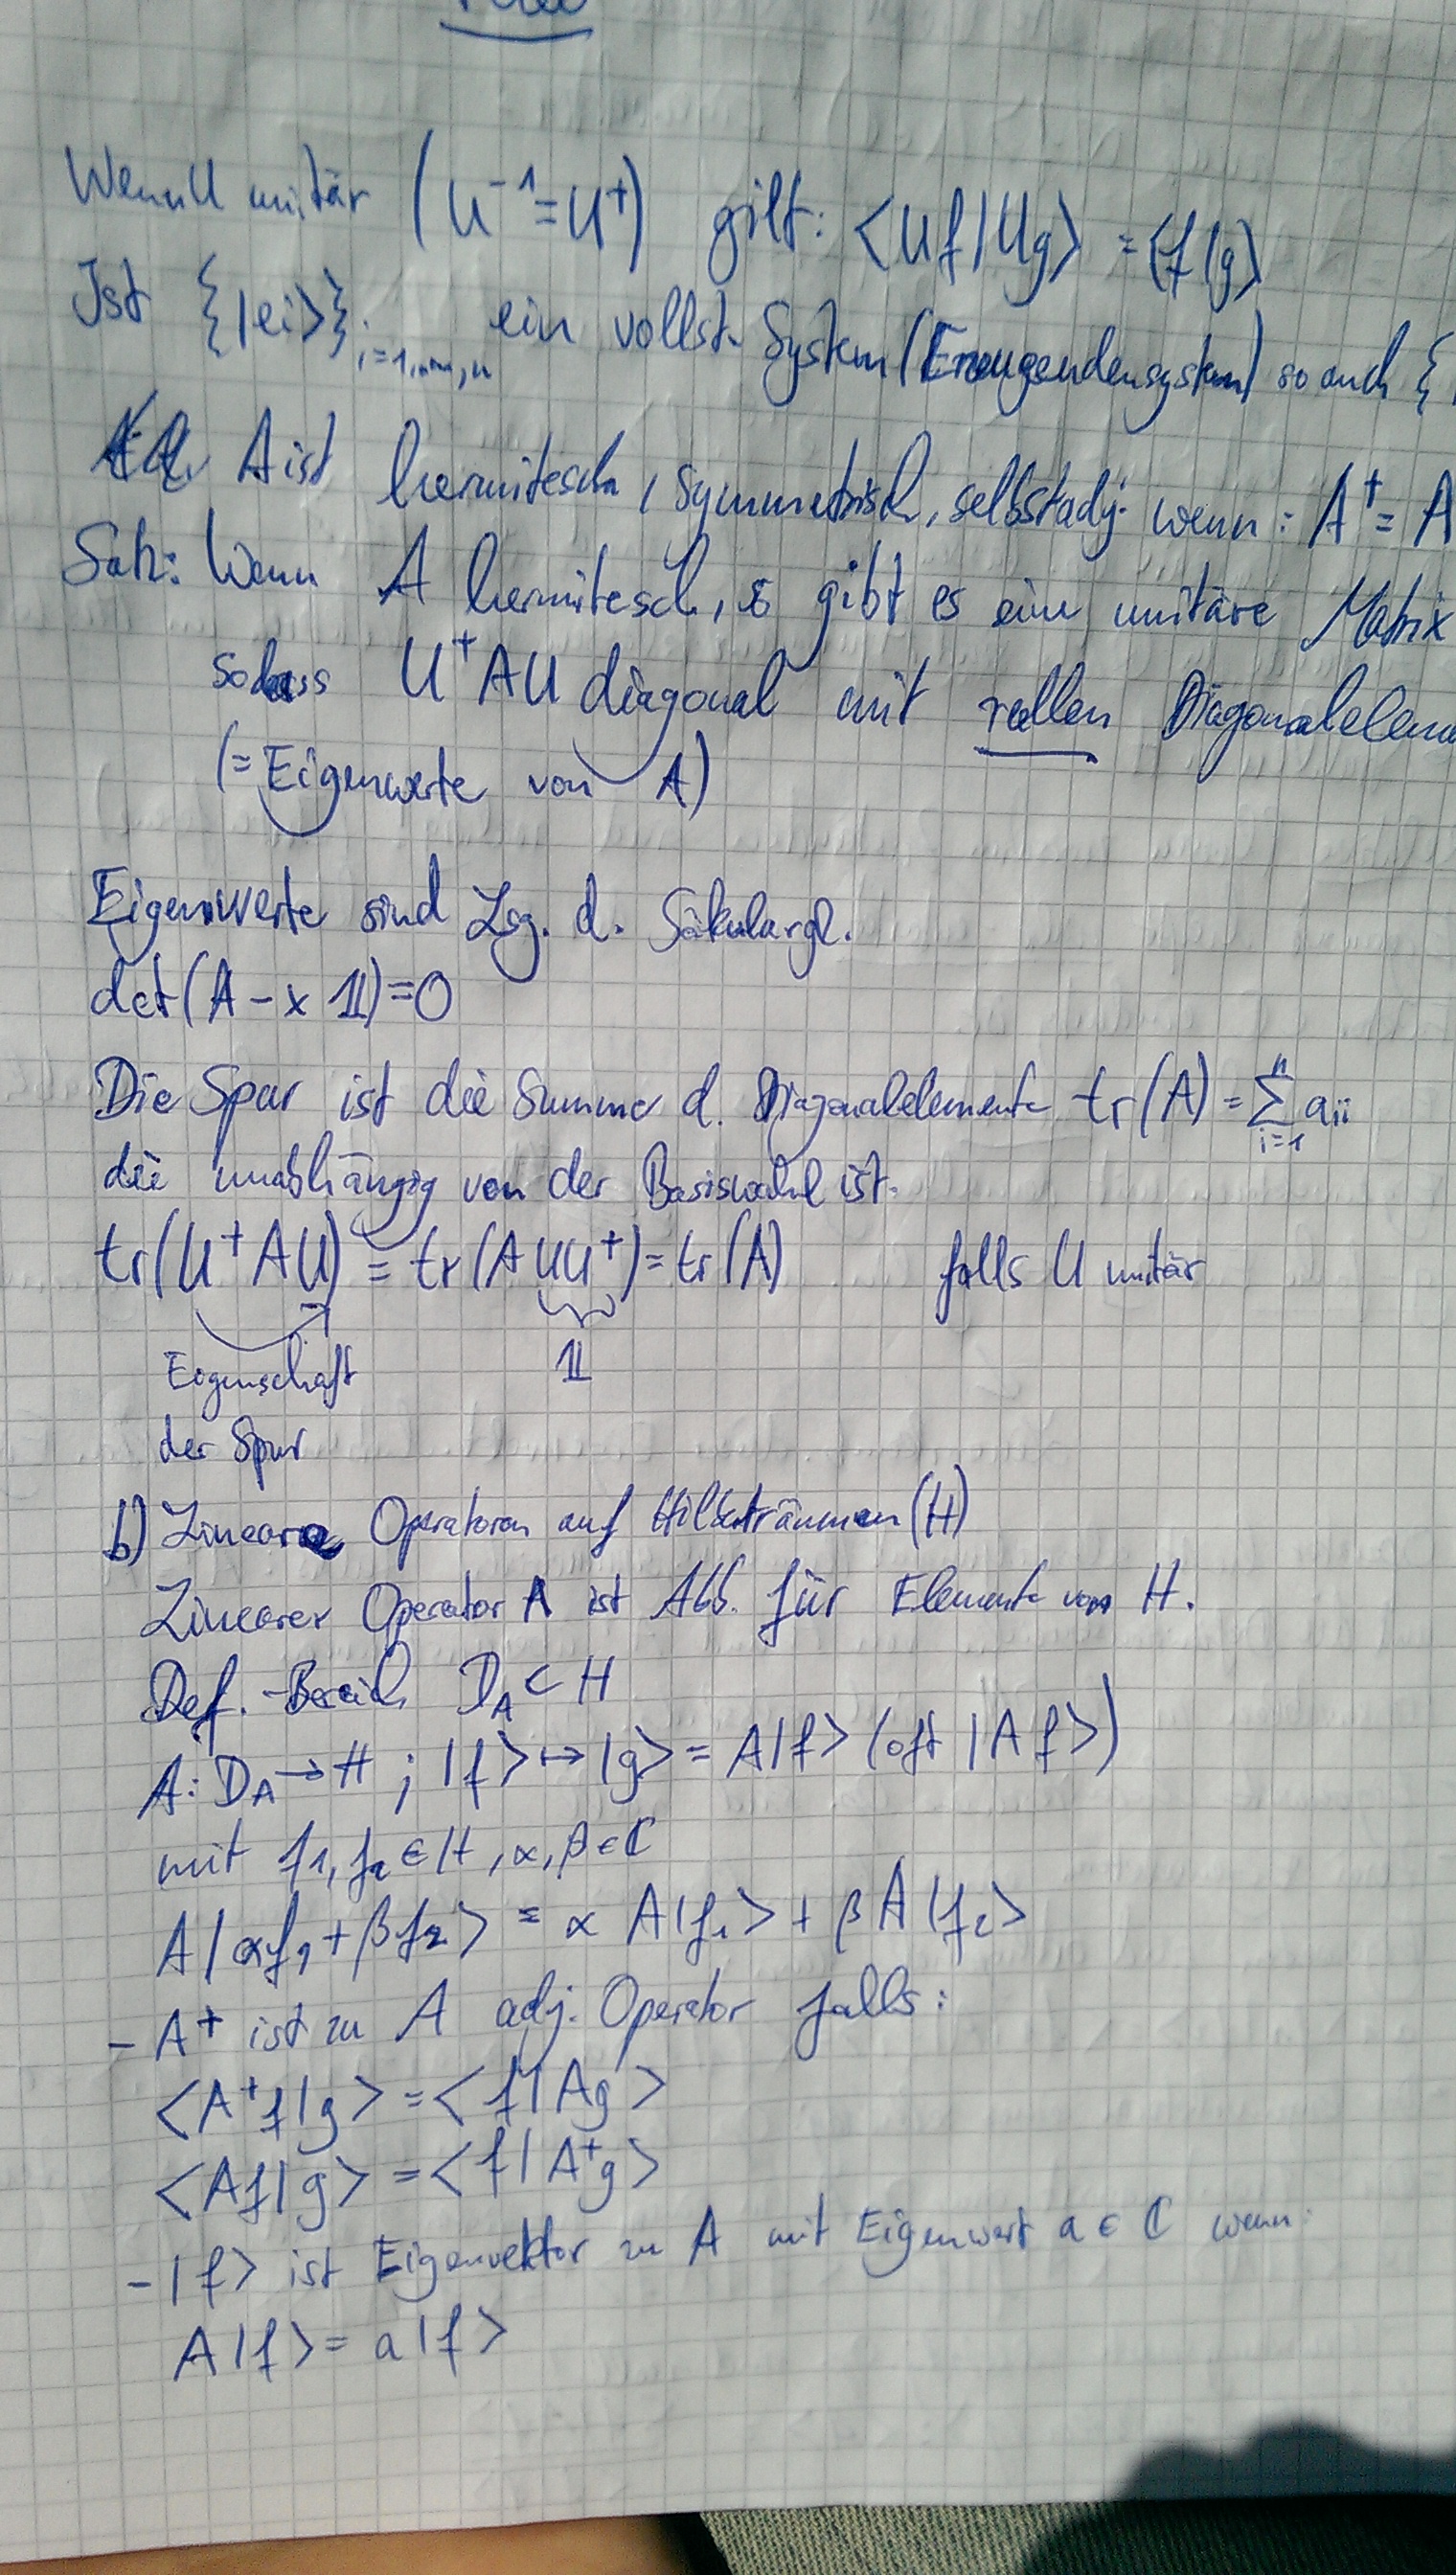 Wenn U unitär (U⁻¹=U⁺) gilt: <Uf|Ug> = <f|g>
Ist {|ei>}i=1,...,n ein vollst. System (Erzeugendensystem) so auch {
A ist hermitesch, symmetrisch, selbstadj. wenn: A⁺= A
Satz: Wenn A hermitesch, so gibt es eine unitäre Matrix
sodass U⁺AU diagonal mit reellen Diagonaleleme
(= Eigenwerte von A)
Eigenwerte sind Lsg. d. Säkulargl.
det(A - x 𝟙)=0
Die Spur ist die Summe d. Diagonalelemente tr(A) = ∑ⁿᵢ₌₁ aii
die unabhängig von der Basiswahl ist.
tr(U⁺AU) = tr(AUU⁺) = tr(A) falls U unitär
Eigenschaft 𝟙
der Spur
b) Lineare Operatoren auf Hilberträumen (H)
Linearer Operator A ist Abb. für Elemente von H.
Def.-Bereich D_A ⊂ H
A: D_A → H ; |f> ↦ |g> = A|f> (oft |Af>)
mit f1, f2 ∈ H, α, β ∈ ℂ
A|αf1 + βf2> = α A|f1> + β A|f2>
- A⁺ ist zu A adj. Operator falls:
<A⁺f|g> = <f|Ag>
<Af|g> = <f|A⁺g>
- |f> ist Eigenvektor zu A mit Eigenwert a ∈ ℂ wenn
A|f> = a|f>